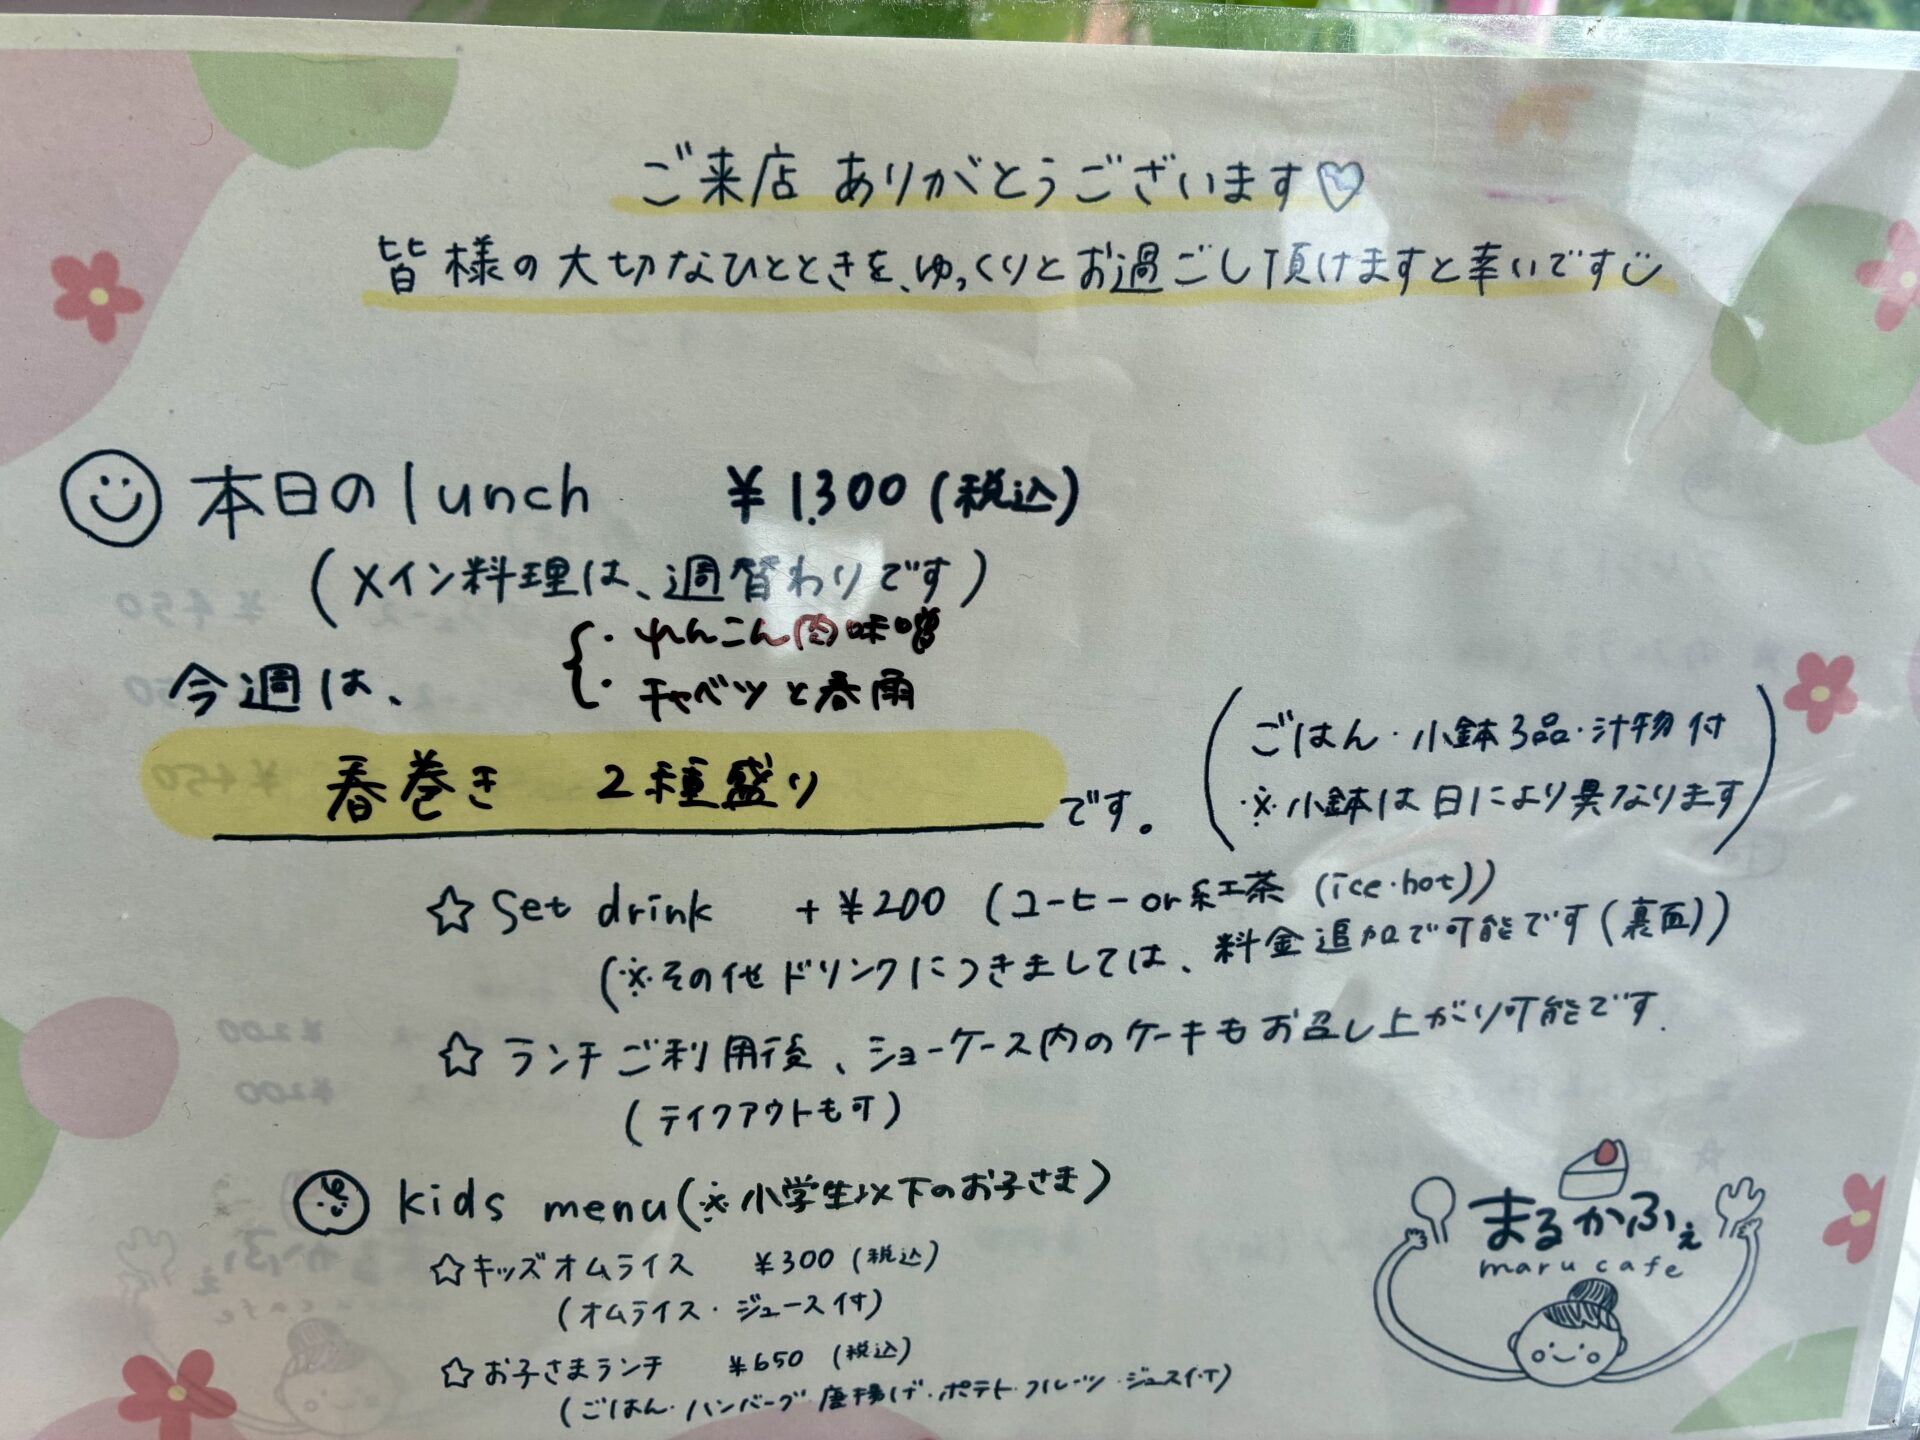 ご来店 ありがとうございます♡
皆様の大切なひとときを、ゆっくりとお過ごし頂けますと幸いです
本日のlunch ¥1,300(税込)
(メイン料理は、週替わりです)
・れんこん肉味噌
今週は、
・キャベツと春雨
春巻き 2種盛り です。
(ごはん・小鉢3品・汁物付
※小鉢は日により異なります)
☆ Set drink +¥200 (コーヒーor紅茶(ice・hot))
(※その他ドリンクにつきましては、料金追加で可能です(裏面))
☆ ランチご利用後、ショーケース内のケーキもお召し上がり可能です.
(テイクアウトも可)
kids menu(※小学生以下のお子さま)
☆キッズオムライス ¥300(税込)
(オムライス・ジュース付)
☆お子さまランチ ¥650(税込)
(ごはん・ハンバーグ・唐揚げ・ポテト・フルーツ・ジュース付)
まるかふぇ
maru cafe